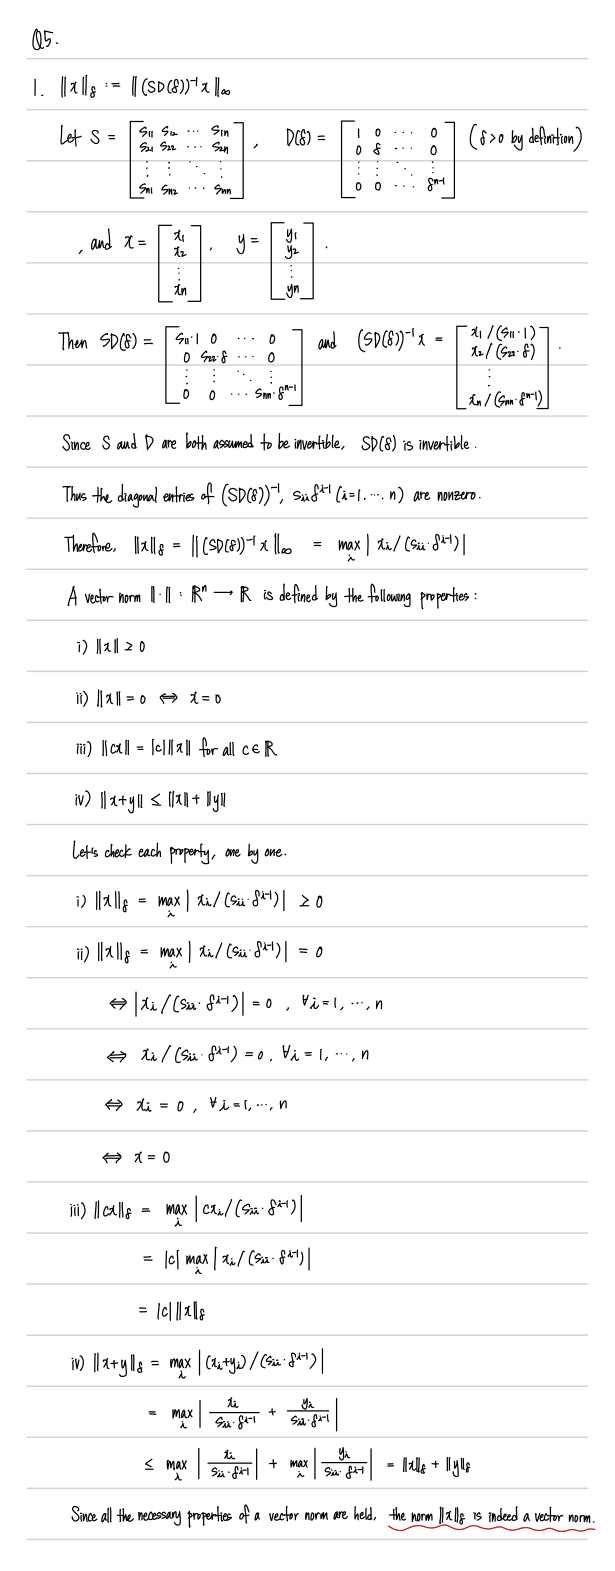 Q5.
1. ‖x‖δ := ‖(SD(δ))⁻¹x‖∞
Let S = [s11 s12 ⋯ s1n; s21 s22 ⋯ s2n; ⋮ ⋮ ⋱ ⋮; sn1 sn2 ⋯ snn], D(δ) = [1 0 ⋯ 0; 0 δ ⋯ 0; ⋮ ⋮ ⋱ ⋮; 0 0 ⋯ δⁿ⁻¹] (δ>0 by definition)
, and x = [x1; x2; ⋮; xn], y = [y1; y2; ⋮; yn].
Then SD(δ) = [s11·1 0 ⋯ 0; 0 s22·δ ⋯ 0; ⋮ ⋮ ⋱ ⋮; 0 0 ⋯ snn·δⁿ⁻¹] and (SD(δ))⁻¹x = [x1/(s11·1); x2/(s22·δ); ⋮; xn/(snn·δⁿ⁻¹)].
Since S and D are both assumed to be invertible, SD(δ) is invertible.
Thus the diagonal entries of (SD(δ))⁻¹, sii δⁱ⁻¹ (i=1, ⋯, n) are nonzero.
Therefore, ‖x‖δ = ‖(SD(δ))⁻¹x‖∞ = max_i |xi/(sii·δⁱ⁻¹)|
A vector norm ‖·‖ : ℝⁿ → ℝ is defined by the following properties :
i) ‖x‖ ≥ 0
ii) ‖x‖ = 0 ⇔ x = 0
iii) ‖cx‖ = |c|‖x‖ for all c ∈ ℝ
iv) ‖x+y‖ ≤ ‖x‖ + ‖y‖
Let's check each property, one by one.
i) ‖x‖δ = max_i |xi/(sii·δⁱ⁻¹)| ≥ 0
ii) ‖x‖δ = max_i |xi/(sii·δⁱ⁻¹)| = 0
⇔ |xi/(sii·δⁱ⁻¹)| = 0, ∀i = 1, ⋯, n
⇔ xi/(sii·δⁱ⁻¹) = 0, ∀i = 1, ⋯, n
⇔ xi = 0, ∀i = 1, ⋯, n
⇔ x = 0
iii) ‖cx‖δ = max_i |cxi/(sii·δⁱ⁻¹)|
= |c| max_i |xi/(sii·δⁱ⁻¹)|
= |c|‖x‖δ
iv) ‖x+y‖δ = max_i |(xi+yi)/(sii·δⁱ⁻¹)|
= max_i |xi/(sii·δⁱ⁻¹) + yi/(sii·δⁱ⁻¹)|
≤ max_i |xi/(sii·δⁱ⁻¹)| + max_i |yi/(sii·δⁱ⁻¹)| = ‖x‖δ + ‖y‖δ
Since all the necessary properties of a vector norm are held, the norm ‖x‖δ is indeed a vector norm.